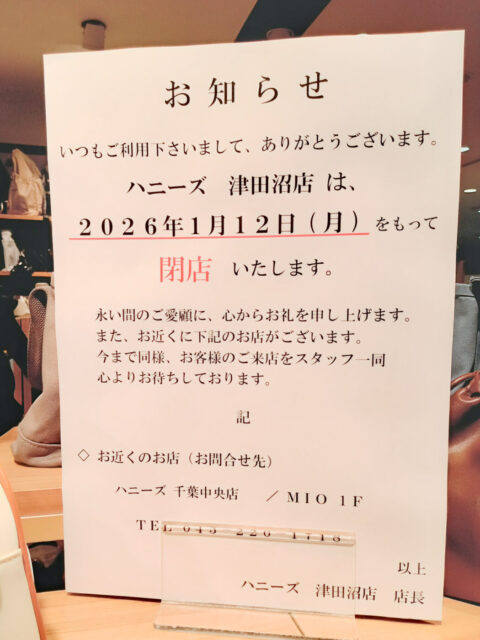 お知らせ
いつもご利用下さいまして、ありがとうございます。
ハニーズ　津田沼店 は、
２０２６年１月１２日（月）をもって
閉店 いたします。
永い間のご愛顧に、心からお礼を申し上げます。
また、お近くに下記のお店がございます。
今まで同様、お客様のご来店をスタッフ一同
心よりお待ちしております。
記
◇ お近くのお店（お問合せ先）
ハニーズ 千葉中央店　／ＭＩＯ １Ｆ
ＴＥＬ
以上
ハニーズ　津田沼店　店長